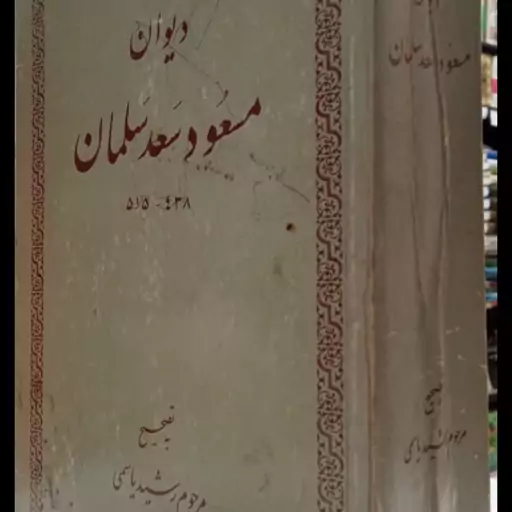 دیوان
مسعود سعد سلمان
۴۳۸ - ۵۱۵
به تصحیح
مرحوم رشید یاسمی
دیوان
مسعود سعد سلمان
تصحیح
مرحوم رشید یاسمی